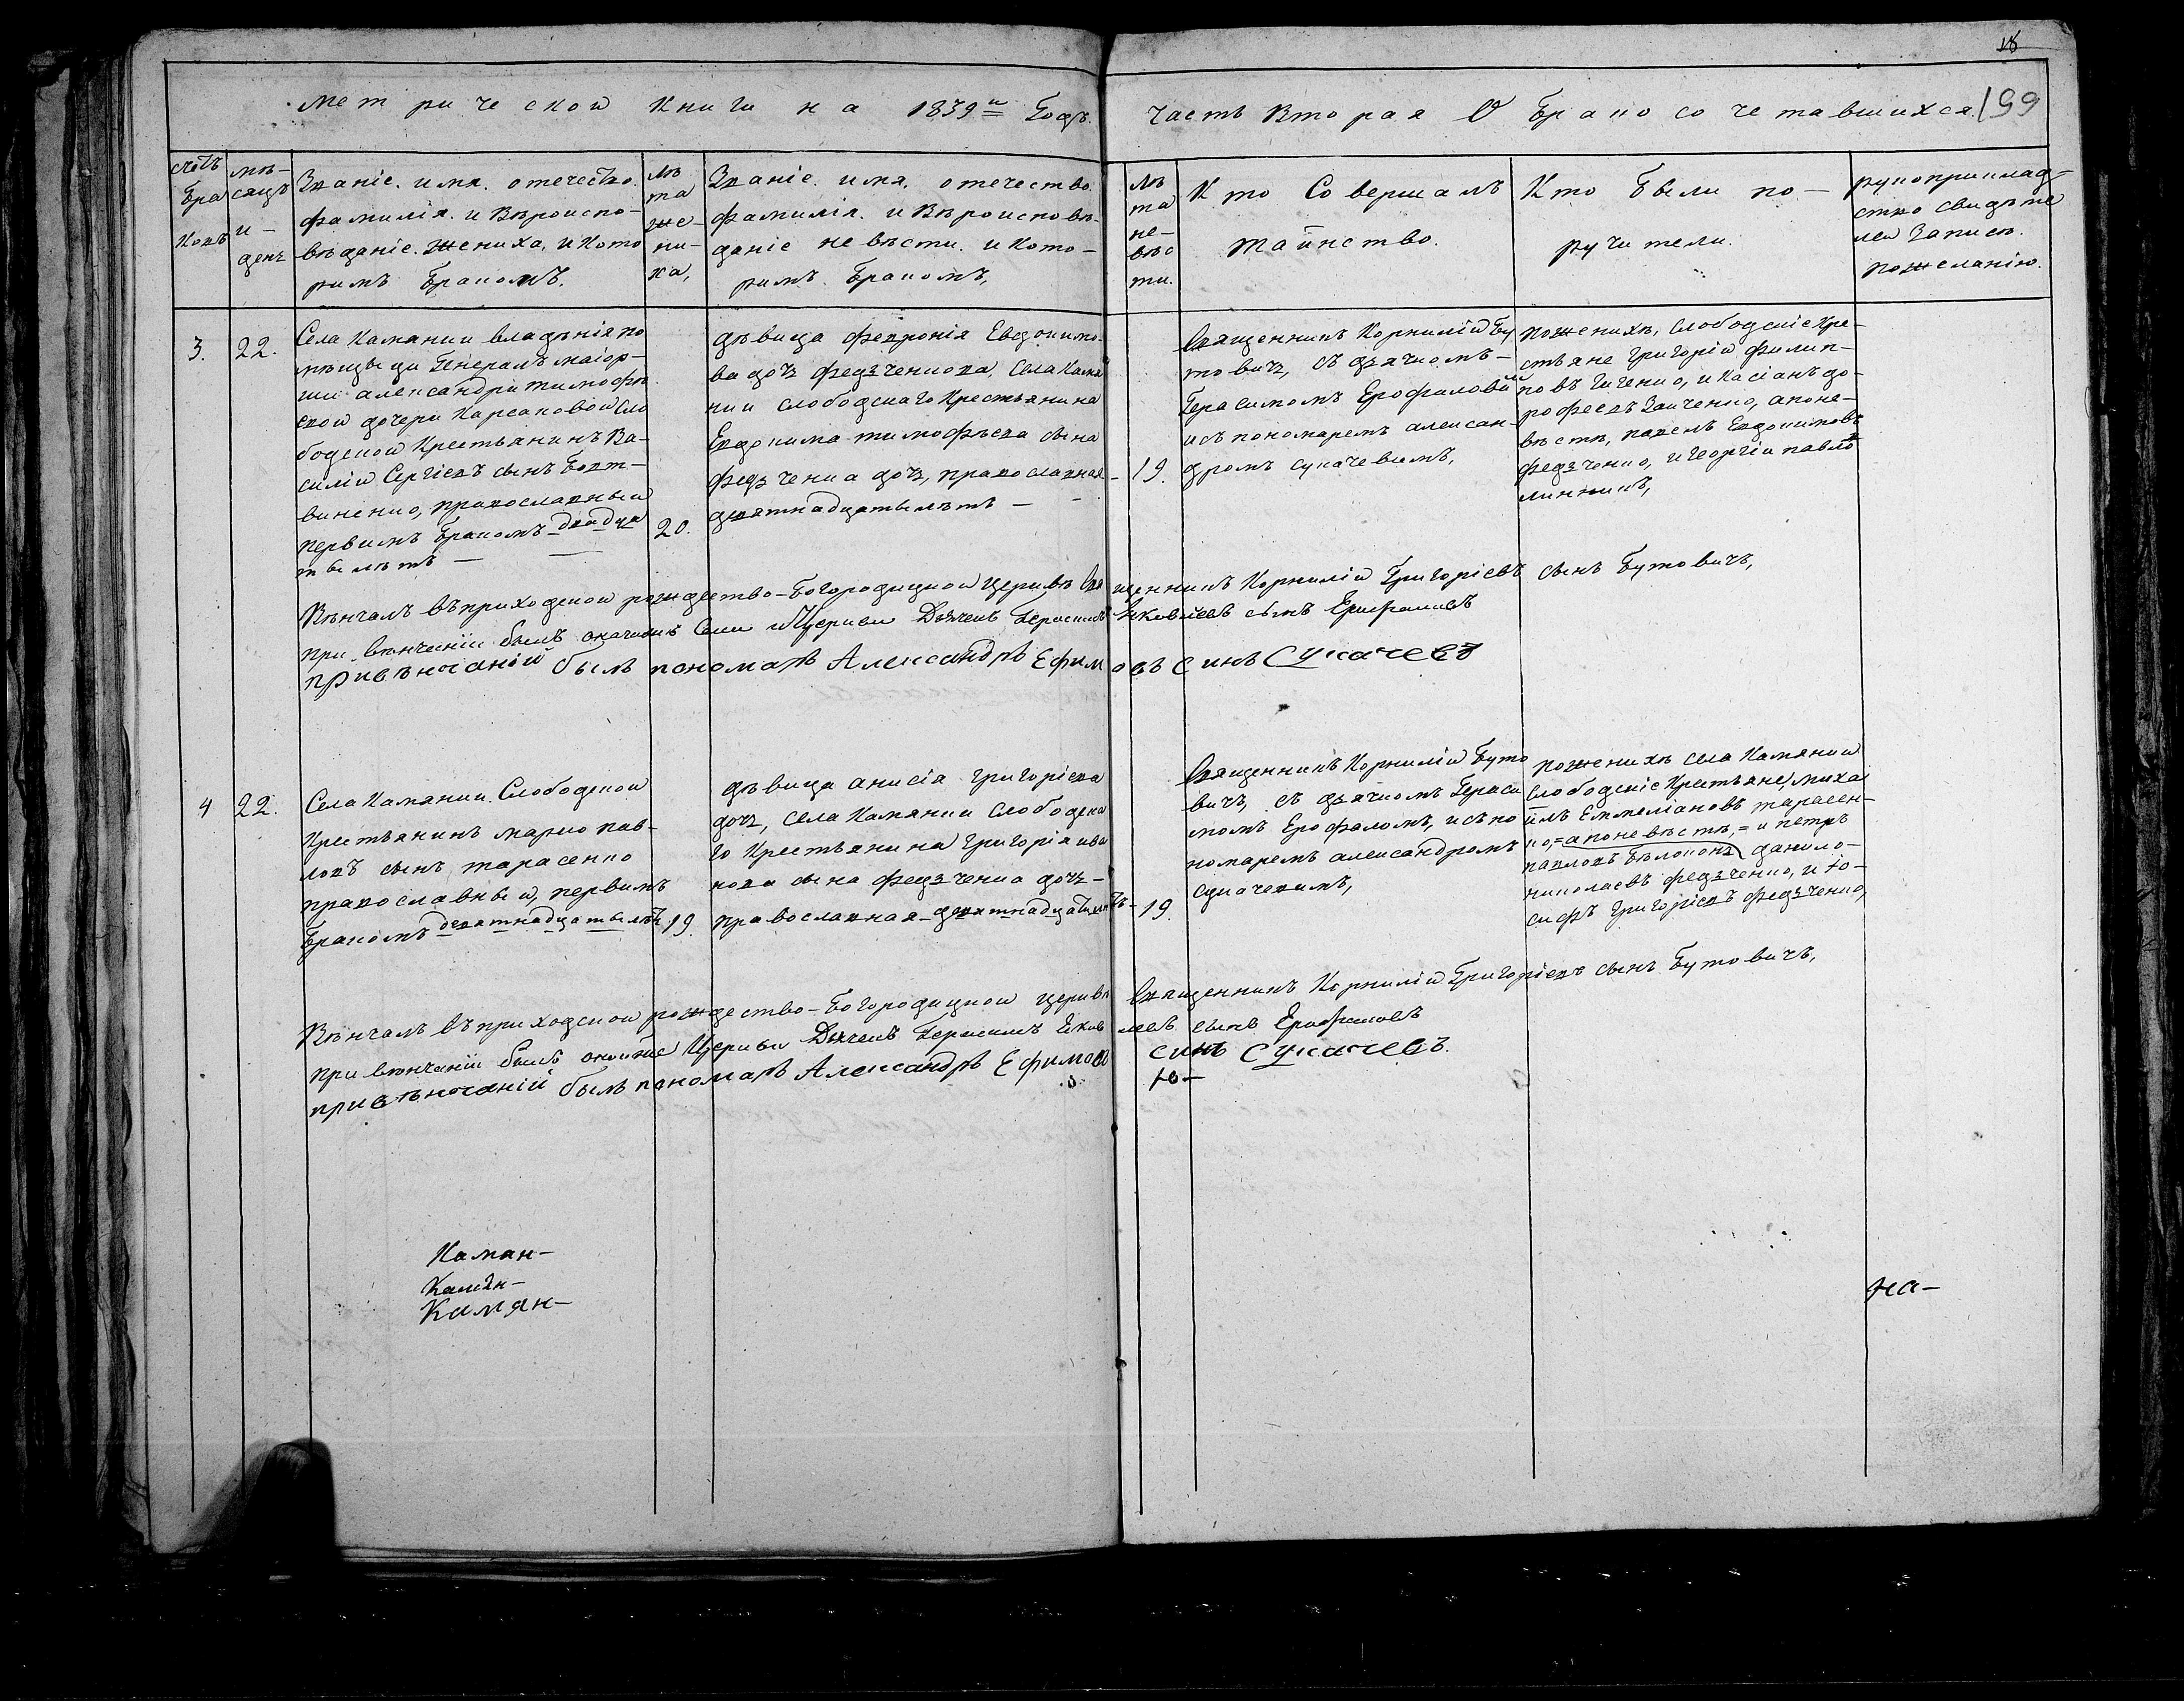 18
199
Метрической книги на 1839й Годъ.
Часть Вторая О Бракосочетавшихся.
счотъ
бра
ковъ
мѣ-
сяцъ
и-
день
Званіе. имя. отечество.
фамилія. и Вѣроиспо-
вѣданіе. жениха, и Кото
римъ Бракомъ.
лѣ
та
же-
ни-
ха,
Званіе. имя. отечество.
фамилія. и Вѣроисповѣ-
даніе невѣсти. и Кото-
римъ Бракомъ,
лѣ
та
не-
вѣс
ти.
Кто Совершалъ
таинство.
Кто были по-
ручители.
рукоприклад-
ство свидѣте
лей Записи.
пожеланію.
3.
22.
Села Камянки владѣнія по
мѣщыци Генералъ маіор-
ши александри тимофѣ
евой дочери Карсаковой Сло
бодской Крестьянинъ Ва-
силій Сергіевъ сынъ Бовт-
виненко, православный
первимъ бракомъ двадца
ты лѣтъ —
20.
дѣвица февронія Евдокимо-
ва дочь федзченкова, Села Камя
нки слободскаго Крестьянина
Евдокима тимофѣева сына
федзченка дочь, православная
девятнадцаты лѣтъ —
19.
Священникъ Корнилій Бу
товичъ, съ дячкомъ-
Герасимомъ Ерофаловим
и съ пономаремъ алексан-
дромъ сукачевымъ,
пожениху, слободскіе Кре-
стьяне Григорій филип-
повъ Гиченко, и Касіанъ до-
рофеевъ Заиченко, апоне-
вѣсти, павелъ Евдокимовъ
федзченко, и Георгій павло
линникъ,
Вѣнчалъ въ приходской рождество-Богородицкой Церквѣ Священникъ Корнилій Григоріевъ сынъ Бутовичъ,
при вѣнчаніи былъ означиной Сели Церкви Дьячекъ Герасимъ Яковлевъ сынъ Ерофаловъ
при вѣнчаній былъ пономаръ Александръ Ефимовъ синъ Сукачевъ
4
22.
Села Камянки Слободской
Крестьянинъ марко пав-
ловъ сынъ тарасенко
православный, первимъ
бракомъ девятнадцаты лѣтъ
19.
дѣвица анисія григоріева
дочь, села Камянки слободска
го Крестьянина григорія ива
нова сына федзченка дочь-
православная-девятнадцаты лѣтъ-
19.
Священникъ Корнилій Буто
вичъ, съ дячкомъ Гераси
момъ Ерофаломъ, и съ по
номаремъ александромъ
сукачевимъ,
пожениху села Камянки
слободскіе Крестьяне, миха
илъ Еммеліановъ тарасен-
ко,=апоневѣстѣ,=и петръ
павловъ Бѣлоконь данило-
николаевъ федзченко, и іо-
сифъ григоріевъ федзченко,
Вѣнчалъ въ приходской рождество-Богородицкой церкви Священникъ Корнилій Григоріевъ сынъ Бутовичъ,
при вѣнчаніи былъ оной же Церкви Дьячекъ Герасимъ Яковлевъ сынъ Ерофаловъ
при вѣнчаній былъ пономаръ Александръ Ефимовъ синъ Сукачевъ.
ю-
Камян-
Камян-
Камян-
на-